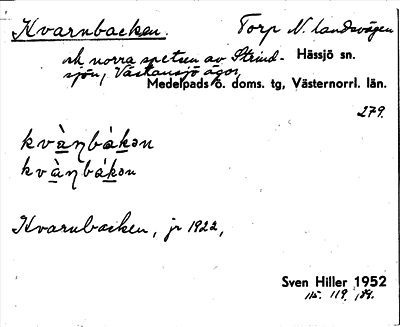 Kvarnbacken. Torp N. landsvägen
vk norra spetsen av Strind- Hässjö sn.
sjön, Västansjö ägor,
Medelpads ö. doms. tg, Västernorrl. län.
279.
kvàɳbákən
kvàɳbákən
Kvarnbacken, jr 1922,
Sven Hiller 1952
115. 119,